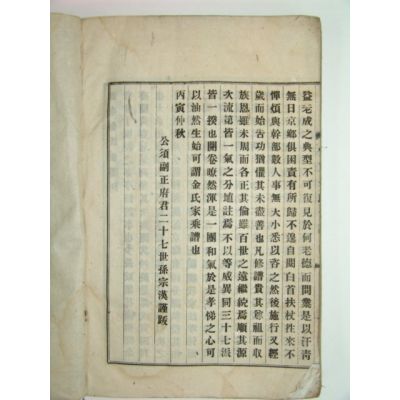 益老成之典型不可復見於何老德而問業是以汗靑
無日京鄕俱困責有所歸不遑自閒白首扶杖往來不
憚煩與幹部數人事無大小悉以咨之然後施行又經
歲而始告功猶懼其未盡善也凡修譜貴其尊祖而收
族恩雖未周而各正其倫雖百世之遠繼統爲順其源
次流第皆一氣之分埴註焉不以等威異同三十七派
皆一揆也開卷暸然渾是一團和氣於是孝悌之心可
以油然生始可謂金氏家乘譜也
丙寅仲秋
公須副正府君二十七世孫宗漢謹跋